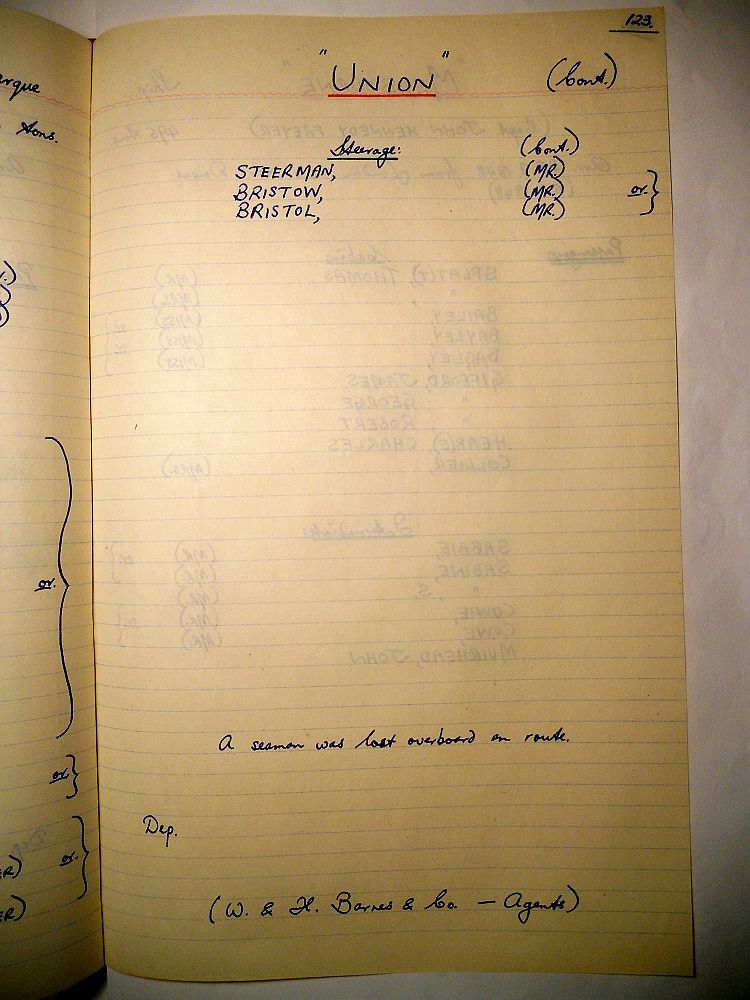 123.
"UNION" (Cont.)
Steerage: (Cont.)
STEERMAN, (MR.)
BRISTOW, (MR.) or.
BRISTOL, (MR.)
A seaman was lost overboard en route.
Dep.
(W. & H. Barnes & Co. — Agents)
arque
Sons.
or.
or.
or.
ER)
ER)